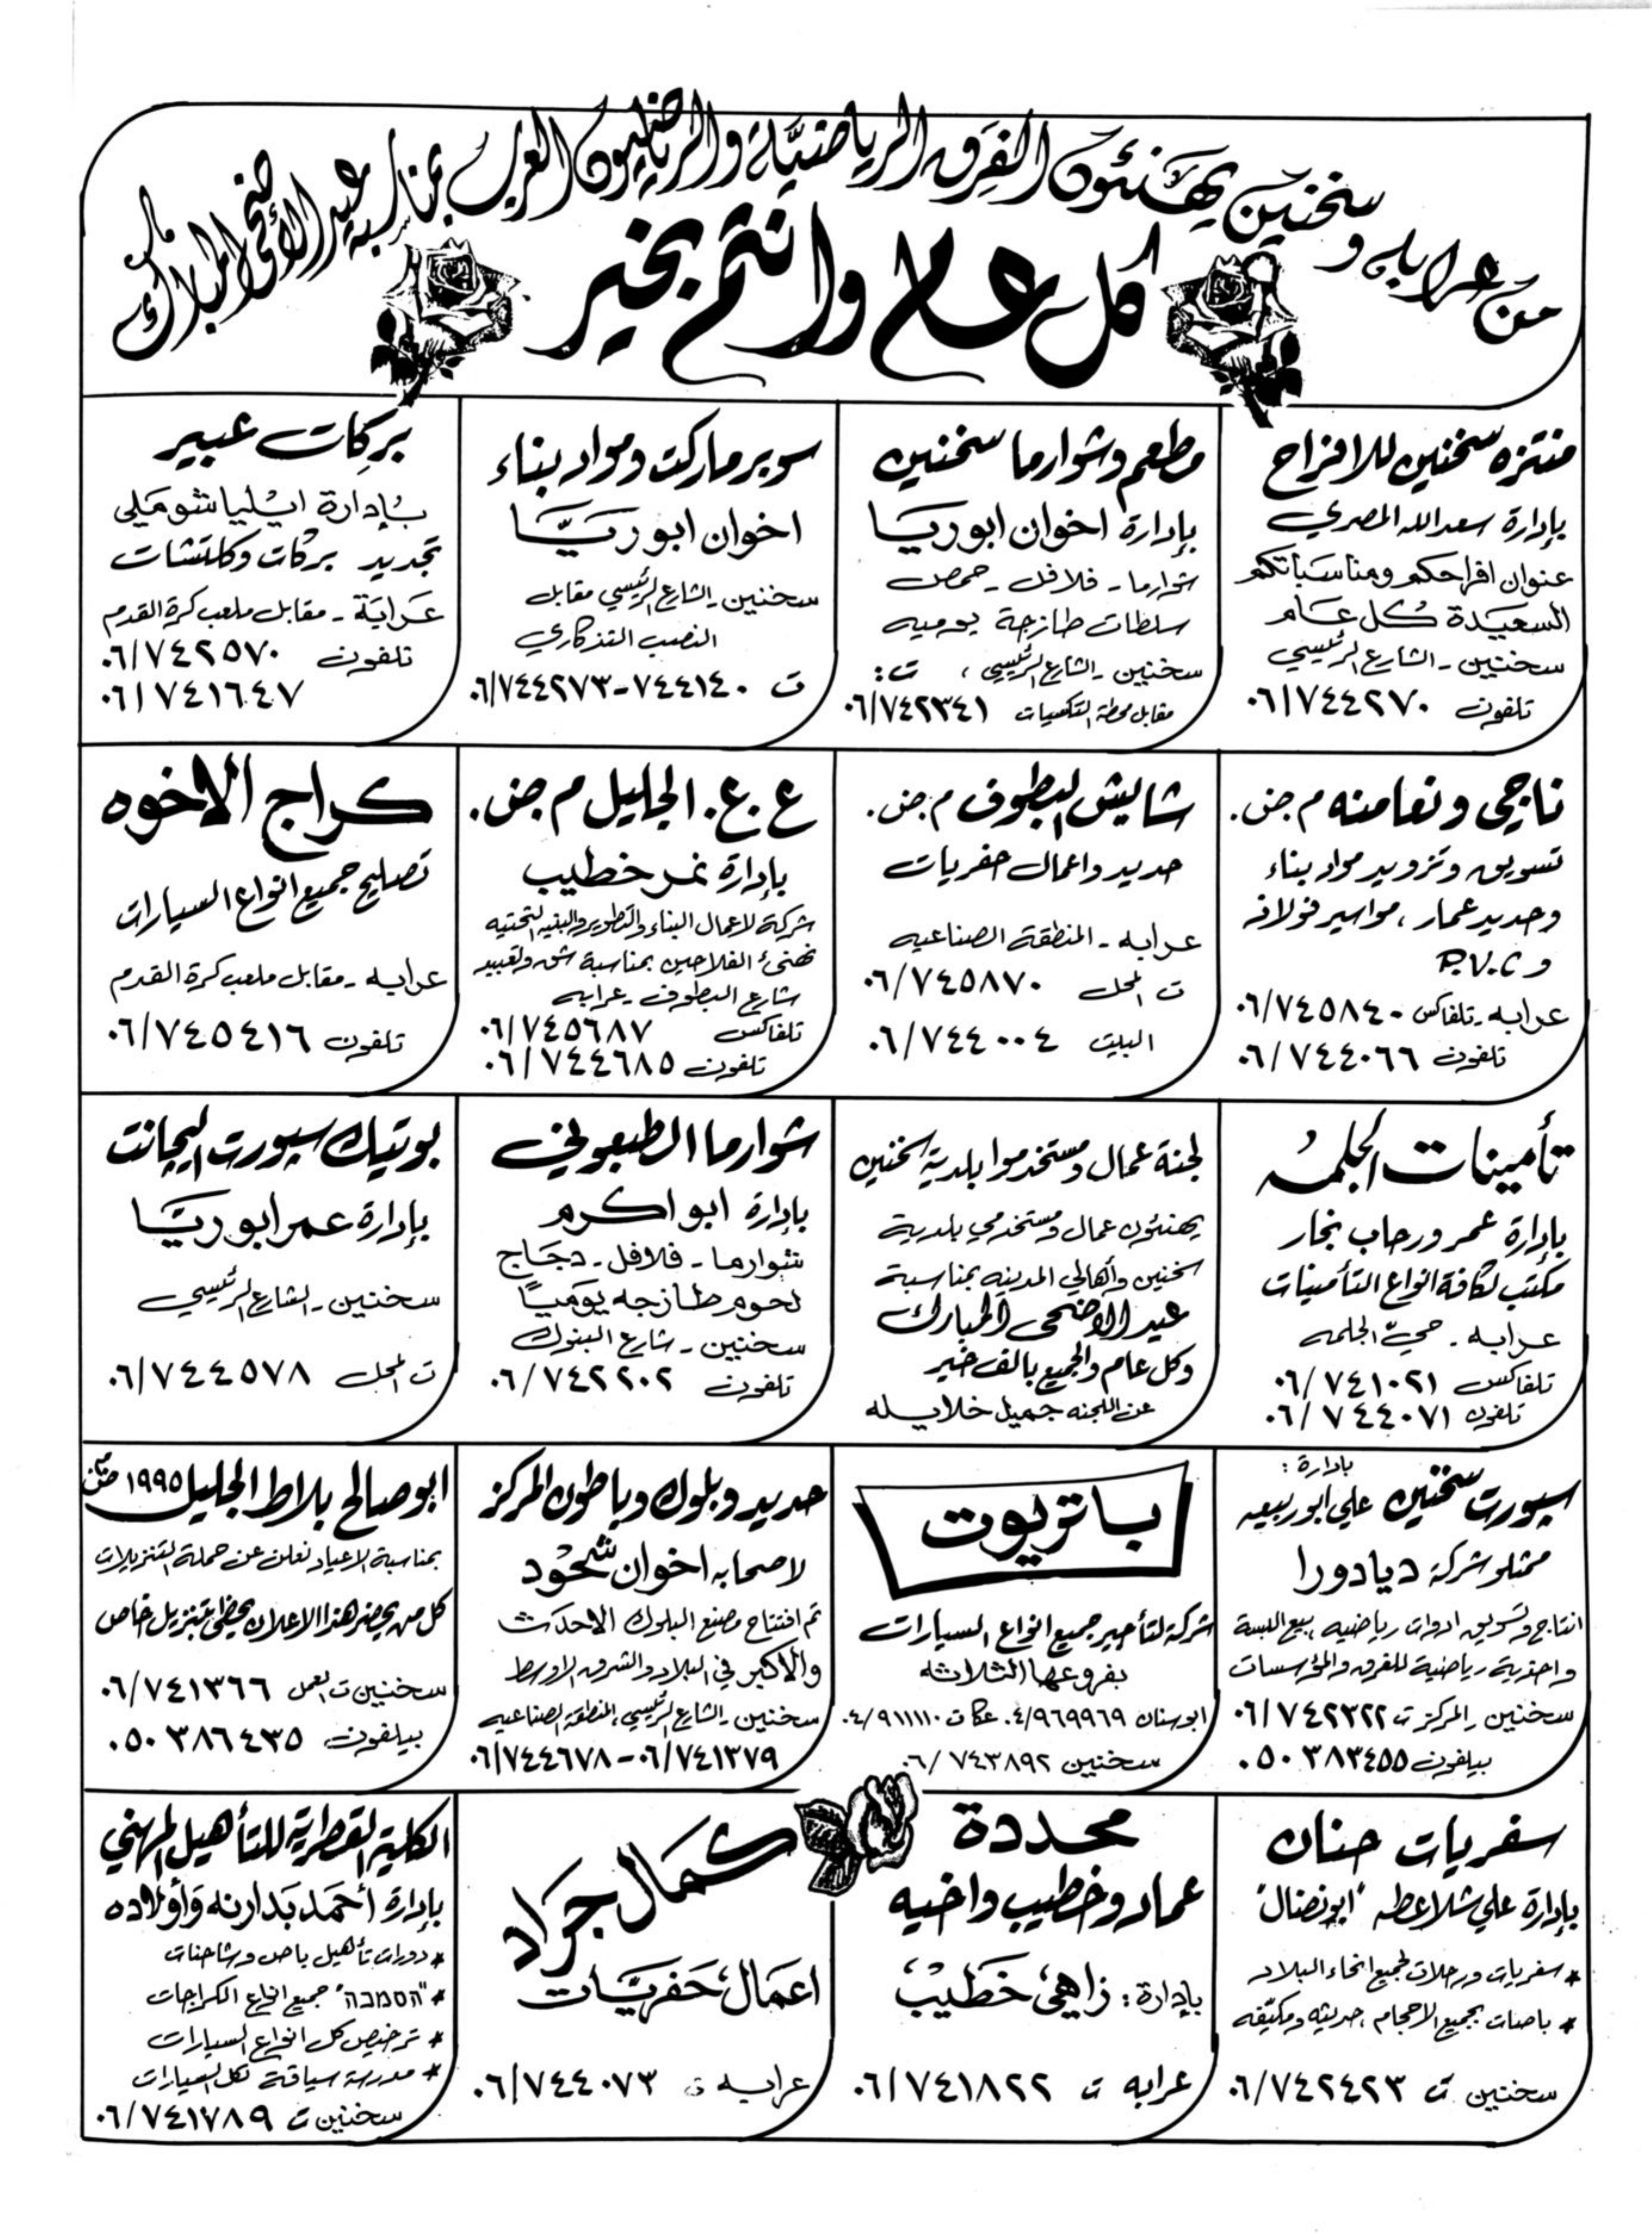 من عرابه وسخنين يهنئون الفرق الرياضية والرياضيون العرب بمناسبة عيد الأضحى المبارك
كل عام وانتم بخير
منتزه سخنين للافراح
بإدارة سعد الله المصري
عنوان افراحكم ومناسباتكم
السعيدة كل عام
سخنين - الشارع الرئيسي
تلفون ٠٦/٧٤٤٢٧٠
مطعم وشوارما سخنين
بإدارة اخوان ابو ريا
شوارما - فلافل - حمص
سلطات طازجة يوميه
سخنين - الشارع الرئيسي ، ت :
مقابل محطة التكسيات ٠٦/٧٤٢٣٤١
سوبر ماركت ومواد بناء
اخوان ابو ريّا
سخنين - الشارع الرئيسي مقابل
النصب التذكاري
ت ٧٤٤١٤٠-٠٦/٧٤٤٢٧٣
بركات عبير
بإدارة ايليا شوملي
تجديد بركات وكلتشات
عرابة - مقابل ملعب كرة القدم
تلفون ٠٦/٧٤٢٥٧٠
٠٦/٧٤١٦٤٧
ناجي ونعامنه م.ض.
تسويق وتزويد مواد بناء
وحديد عمار ، مواسير فولاذ
و P.V.C
عرابه - تلفاكس ٠٦/٧٤٥٨٤٠
تلفون ٠٦/٧٤٤٠٦٦
شاليش البطوف م.ض.
حديد واعمال حفريات
عرابه - المنطقة الصناعيه
ت المحل ٠٦/٧٤٥٨٧٠
البيت ٠٦/٧٤٤٠٠٤
ع.ع. الجليل م.ض.
بإدارة نمر خطيب
شركة لاعمال البناء والتطوير والبنيه التحتيه
تهنئ الفلاحين بمناسبة شق وتعبيد
شارع البطوف - عرابه
تلفاكس ٠٦/٧٤٥٦٨٧
تلفون ٠٦/٧٤٤٦٨٥
كراج الاخوه
تصليح جميع انواع السيارات
عرابه - مقابل ملعب كرة القدم
تلفون ٠٦/٧٤٥٤١٦
تأمينات الجلمه
بإدارة عمر ورحاب نجار
مكتب لكافة انواع التأمينات
عرابه - حيّ الجلمه
تلفاكس ٠٦/٧٤١٠٢١
تلفون ٠٦/٧٤٤٠٧١
لجنة عمال ومستخدموا بلدية سخنين
يهنئون عمال ومستخدمي بلدية
سخنين وأهالي المدينه بمناسبة
عيد الاضحى المبارك
وكل عام والجميع بالف خير
عن اللجنه جميل خلايله
شوارما الطبعوني
بإدارة ابو اكرم
شوارما - فلافل - دجاج
لحوم طازجه يوميًا
سخنين - شارع البنوك
تلفون ٠٦/٧٤٢٢٠٢
بوتيك سبورت اليجانت
بإدارة عمر ابو ريّا
سخنين - الشارع الرئيسي
ت المحل ٠٦/٧٤٤٥٧٨
بادارة :
سبورت سخنين علي ابو ربيعه
ممثلو شركة ديادورا
انتاج وتسويق ادوات رياضيه ، بيع البسة
واحذية رياضية للفرق والمؤسسات
سخنين - المركز ت ٠٦/٧٤٢٣٢٢
بيلفون ٠٥٠٣٨٣٤٥٥
باتريوت
شركة لتأجير جميع انواع السيارات
بفروعها الثلاثه
ابو سنان ٠٤/٩٦٩٩٦٩ عكا ت ٠٤/٩١١١١٠
سخنين ٠٦/٧٤٣٨٩٢
حديد وبلوك وباطون المركز
لاصحابه اخوان شحود
تم افتتاح مصنع البلوك الاحدث
والاكبر في البلاد والشرق الاوسط
سخنين - الشارع الرئيسي ، المنطقة الصناعيه
٠٦/٧٤١٣٧٩ - ٠٦/٧٤٤٦٧٨
ابو صالح بلاط الجليل ١٩٩٥
بمناسبة الاعياد نعلن عن حملة التنزيلات
كل من يحضر هذا الاعلان يحظى بتنزيل خاص
سخنين ت العمل ٠٦/٧٤١٣٦٦
بيلفون ٠٥٠٣٨٦٤٣٥
سفريات حنان
بإدارة علي شلاعطه "ابو نضال"
* سفريات ورحلات لجميع انحاء البلاد
* باصات بجميع الاحجام ، حديثه ومكيّفه
سخنين ت ٠٦/٧٤٢٤٢٣
محددة
عماد وخطيب واخيه
بإدارة : زاهي خطيب
عرابه ت ٠٦/٧٤١٨٢٢
شمال جراد
اعمال حفريات
عرابه ت ٠٦/٧٤٤٠٧٣
الكلية القطرية للتأهيل المهني
بإدارة أحمد بدارنه وأولاده
* دورات تأهيل باص وشاحنات
* "הסמכה" جميع انواع الكراجات
* ترخيص كل انواع السيارات
* مدرسة سياقة لكل السيارات
سخنين ت ٠٦/٧٤١٧٨٩